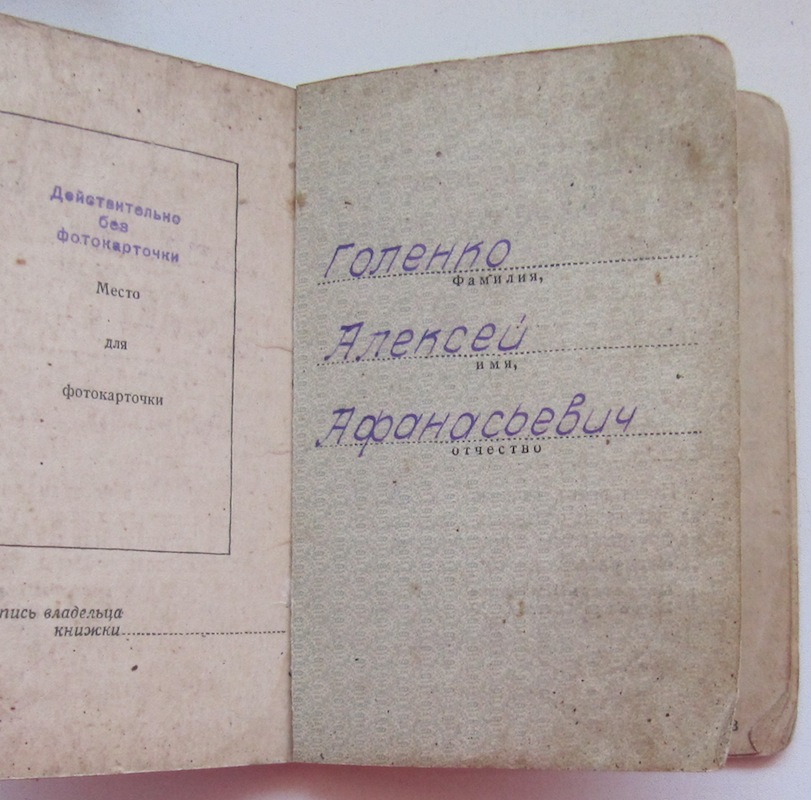 Действительно
без
фотокарточки
Место
для
фотокарточки
пись владельца
книжки
Голенко
Фамилия,
Алексей
имя,
Афанасьевич
отчество
3